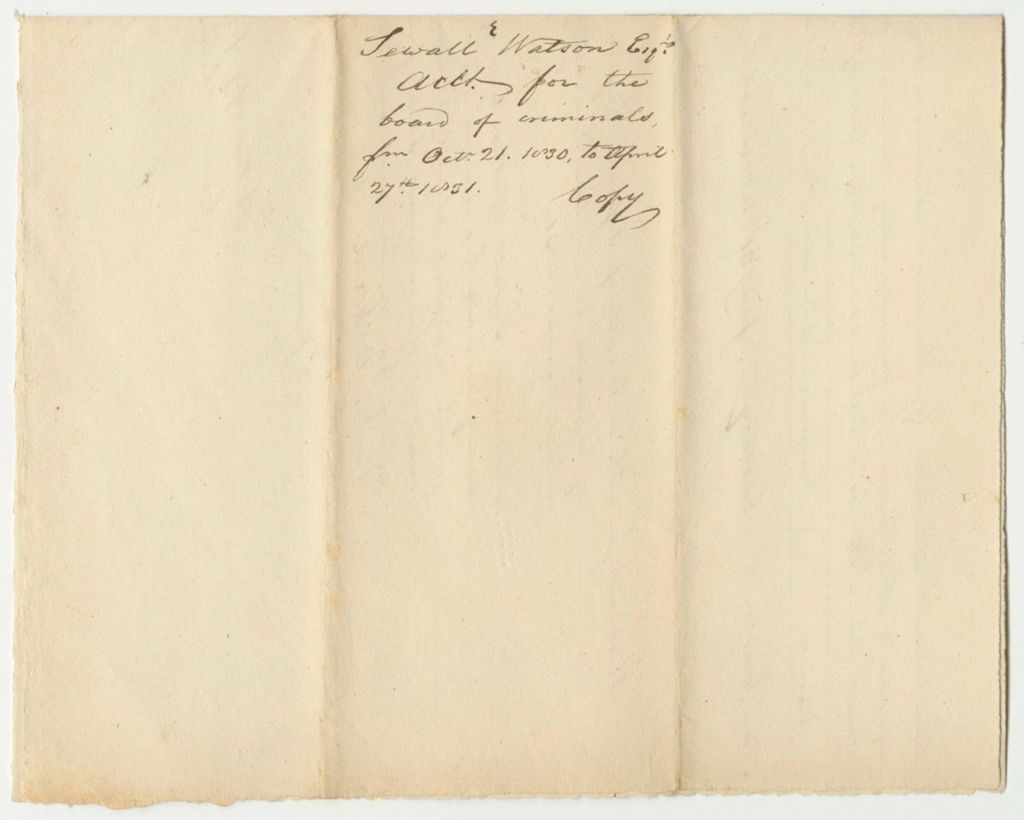 Sewall Watson Esq's
Acct. for the
board of criminals,
fm Octr 21. 1830, to April
27th 1831.
Copy